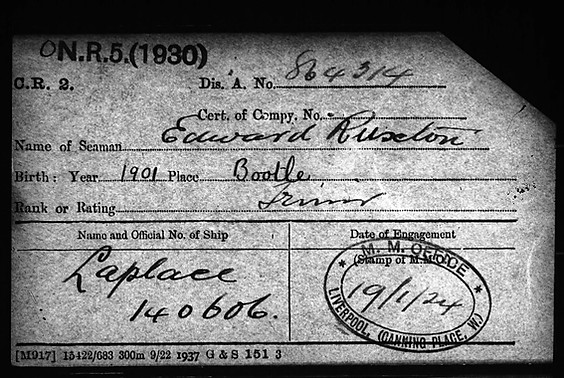 ON.R.5.(1930)
C.R. 2. Dis. A. No. 864314
Cert. of Compy. No.
Name of Seaman Edward Ruxton
Birth: Year 1901 Place Bootle
Rank or Rating Trimr
Name and Official No. of Ship Date of Engagement
(Stamp of M.M.O.)
Laplace
140606.
M. M. OFFICE
19/1/24
LIVERPOOL, (CANNING PLACE, W.)
[M917] 15422/683 300m 9/22 1937 G & S 151 3